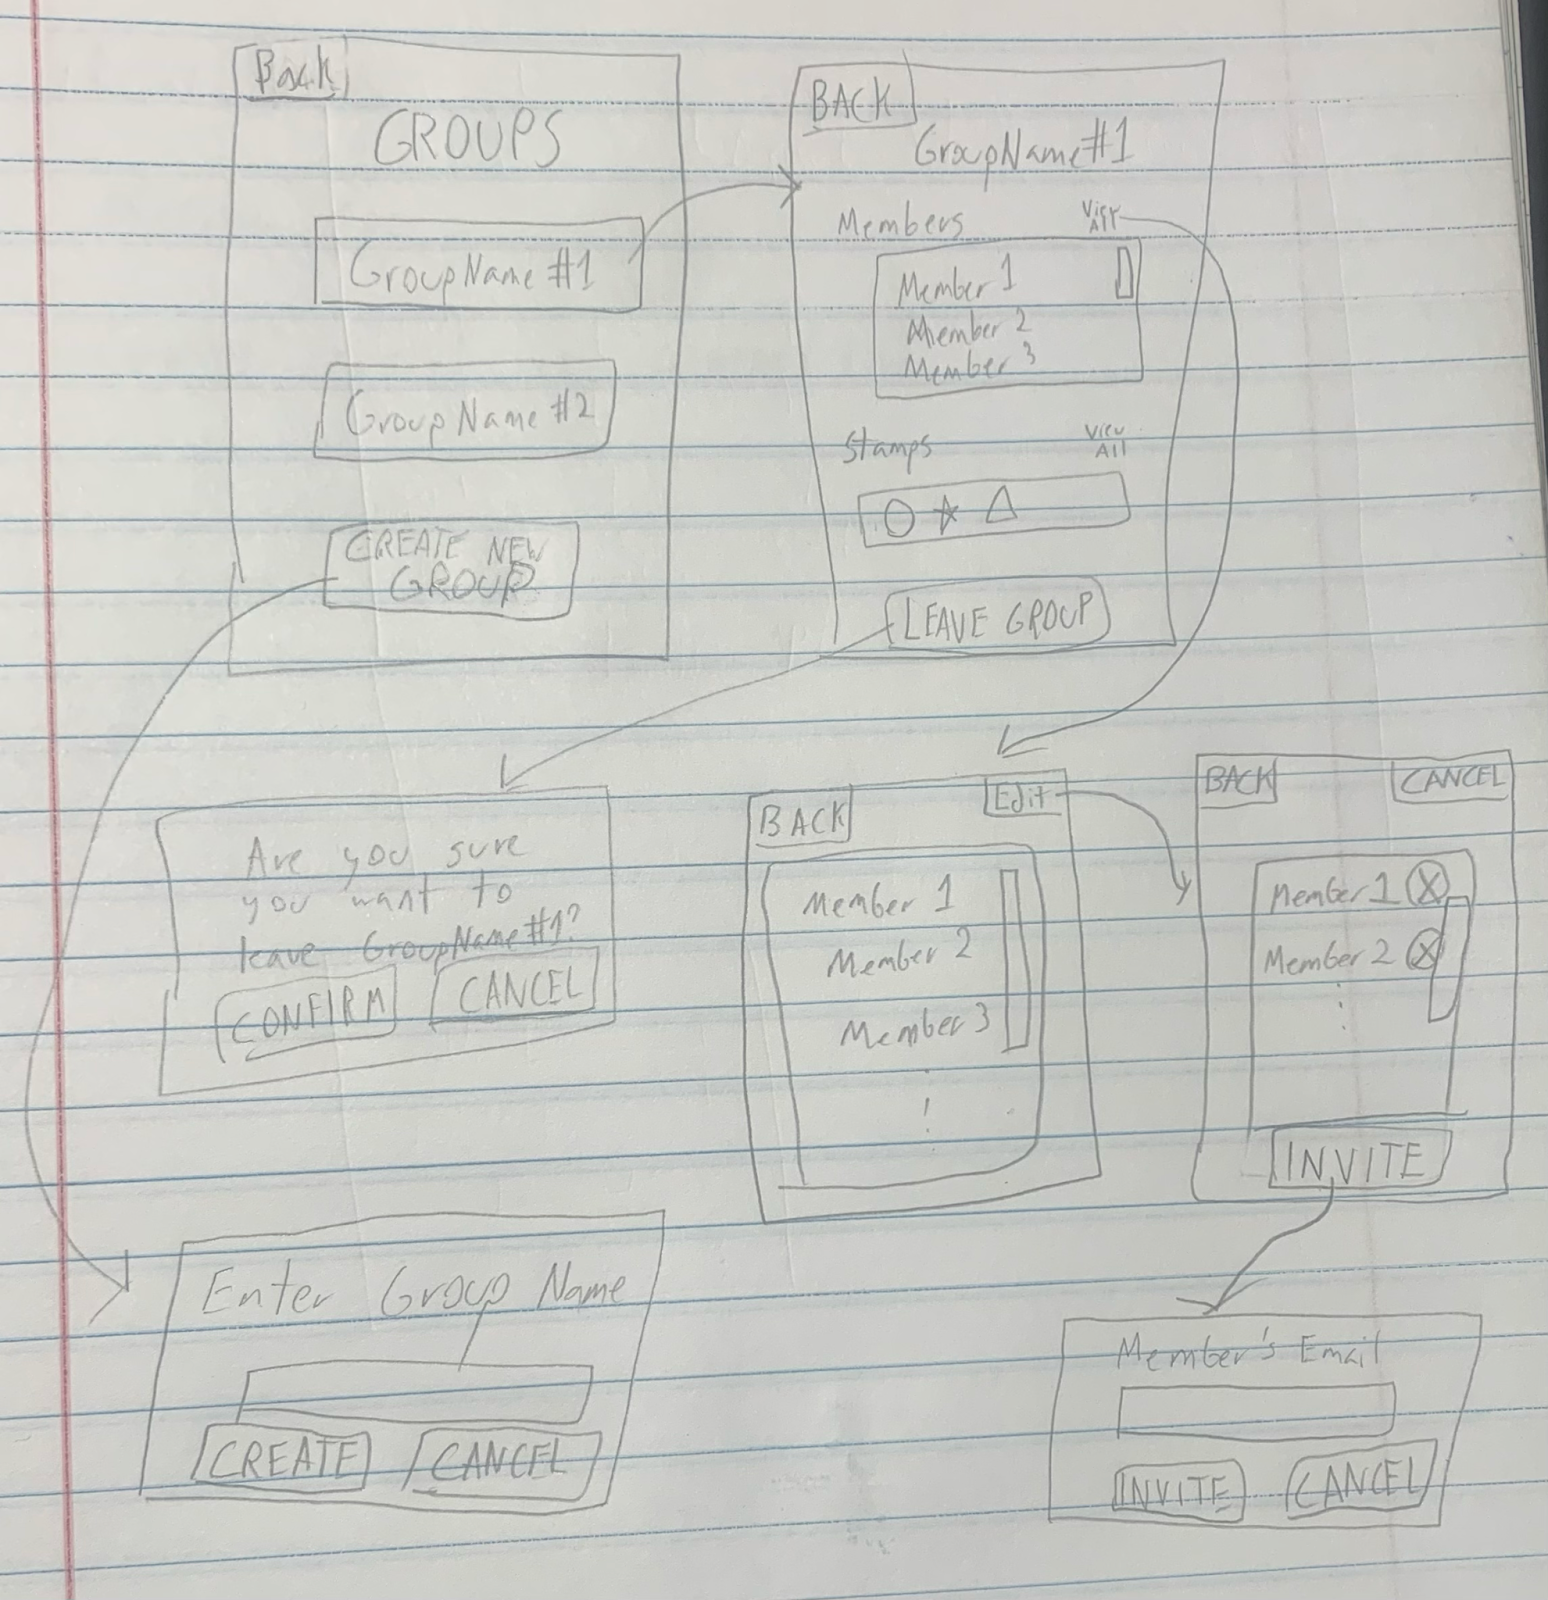 Back
GROUPS
GroupName #1
GroupName #2
CREATE NEW
GROUP
BACK
GroupName#1
Members
View
All
Member 1
Member 2
Member 3
Stamps
View
All
LEAVE GROUP
Are you sure
you want to
leave GroupName#1?
CONFIRM
CANCEL
BACK
Edit
Member 1
Member 2
Member 3
BACK
CANCEL
Member 1 X
Member 2 X
INVITE
Enter Group Name
CREATE
CANCEL
Member's Email
INVITE
CANCEL